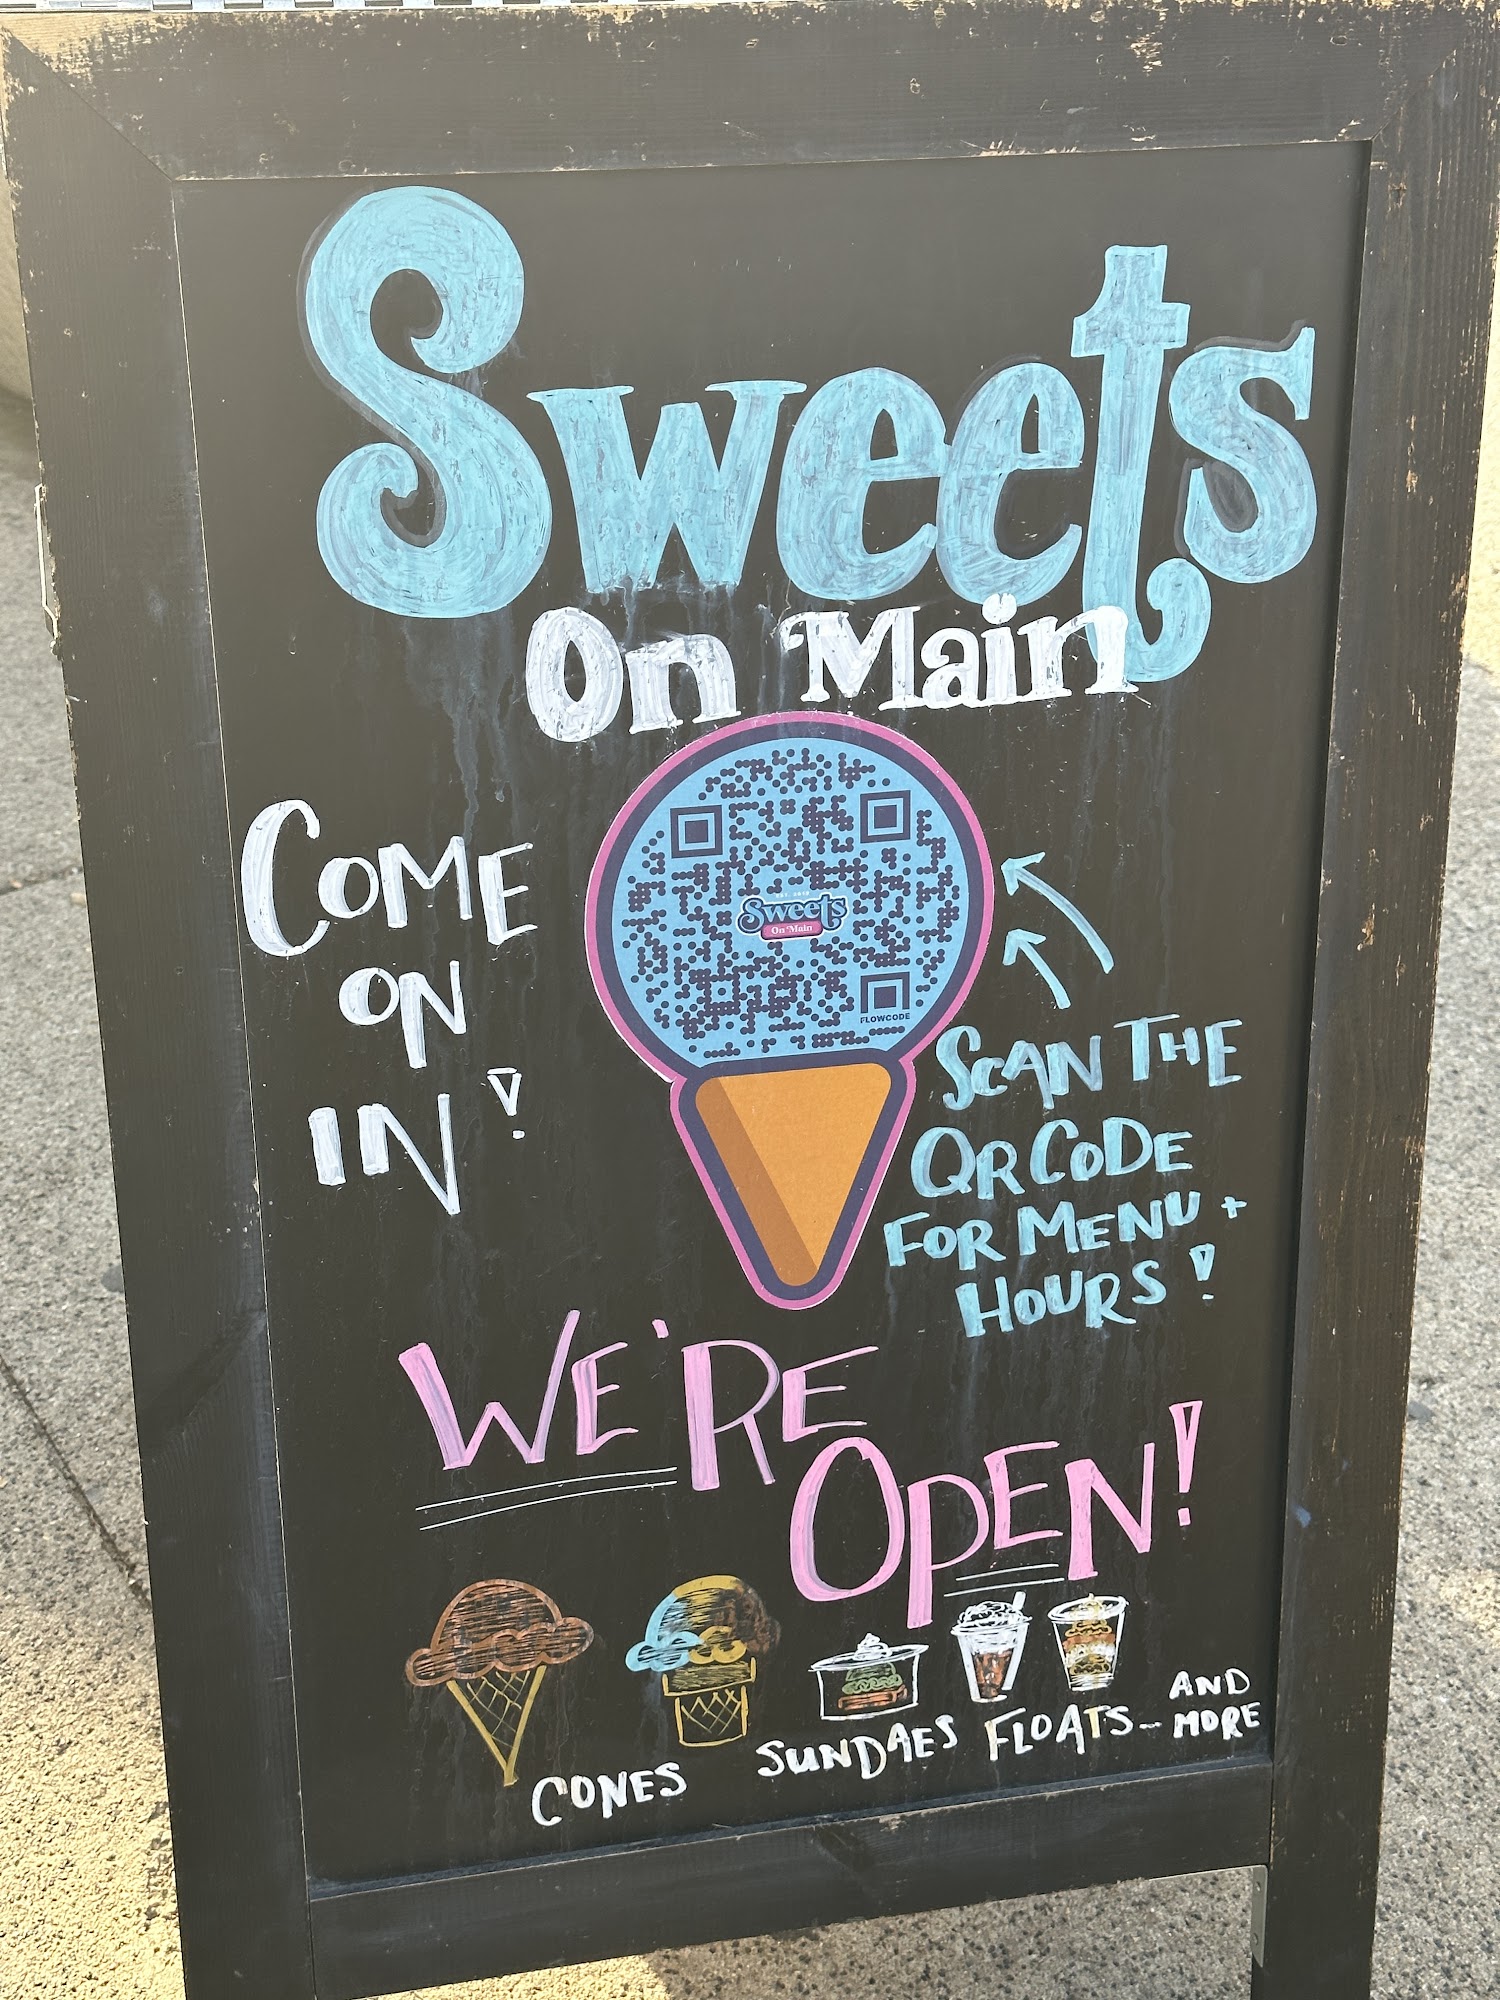 Sweets
On Main
COME
ON
IN!
Sweets
On Main
FLOWCODE
SCAN THE
QR CODE
FOR MENU +
HOURS!
WE'RE
OPEN!
CONES
SUNDAES
FLOATS-
AND
MORE